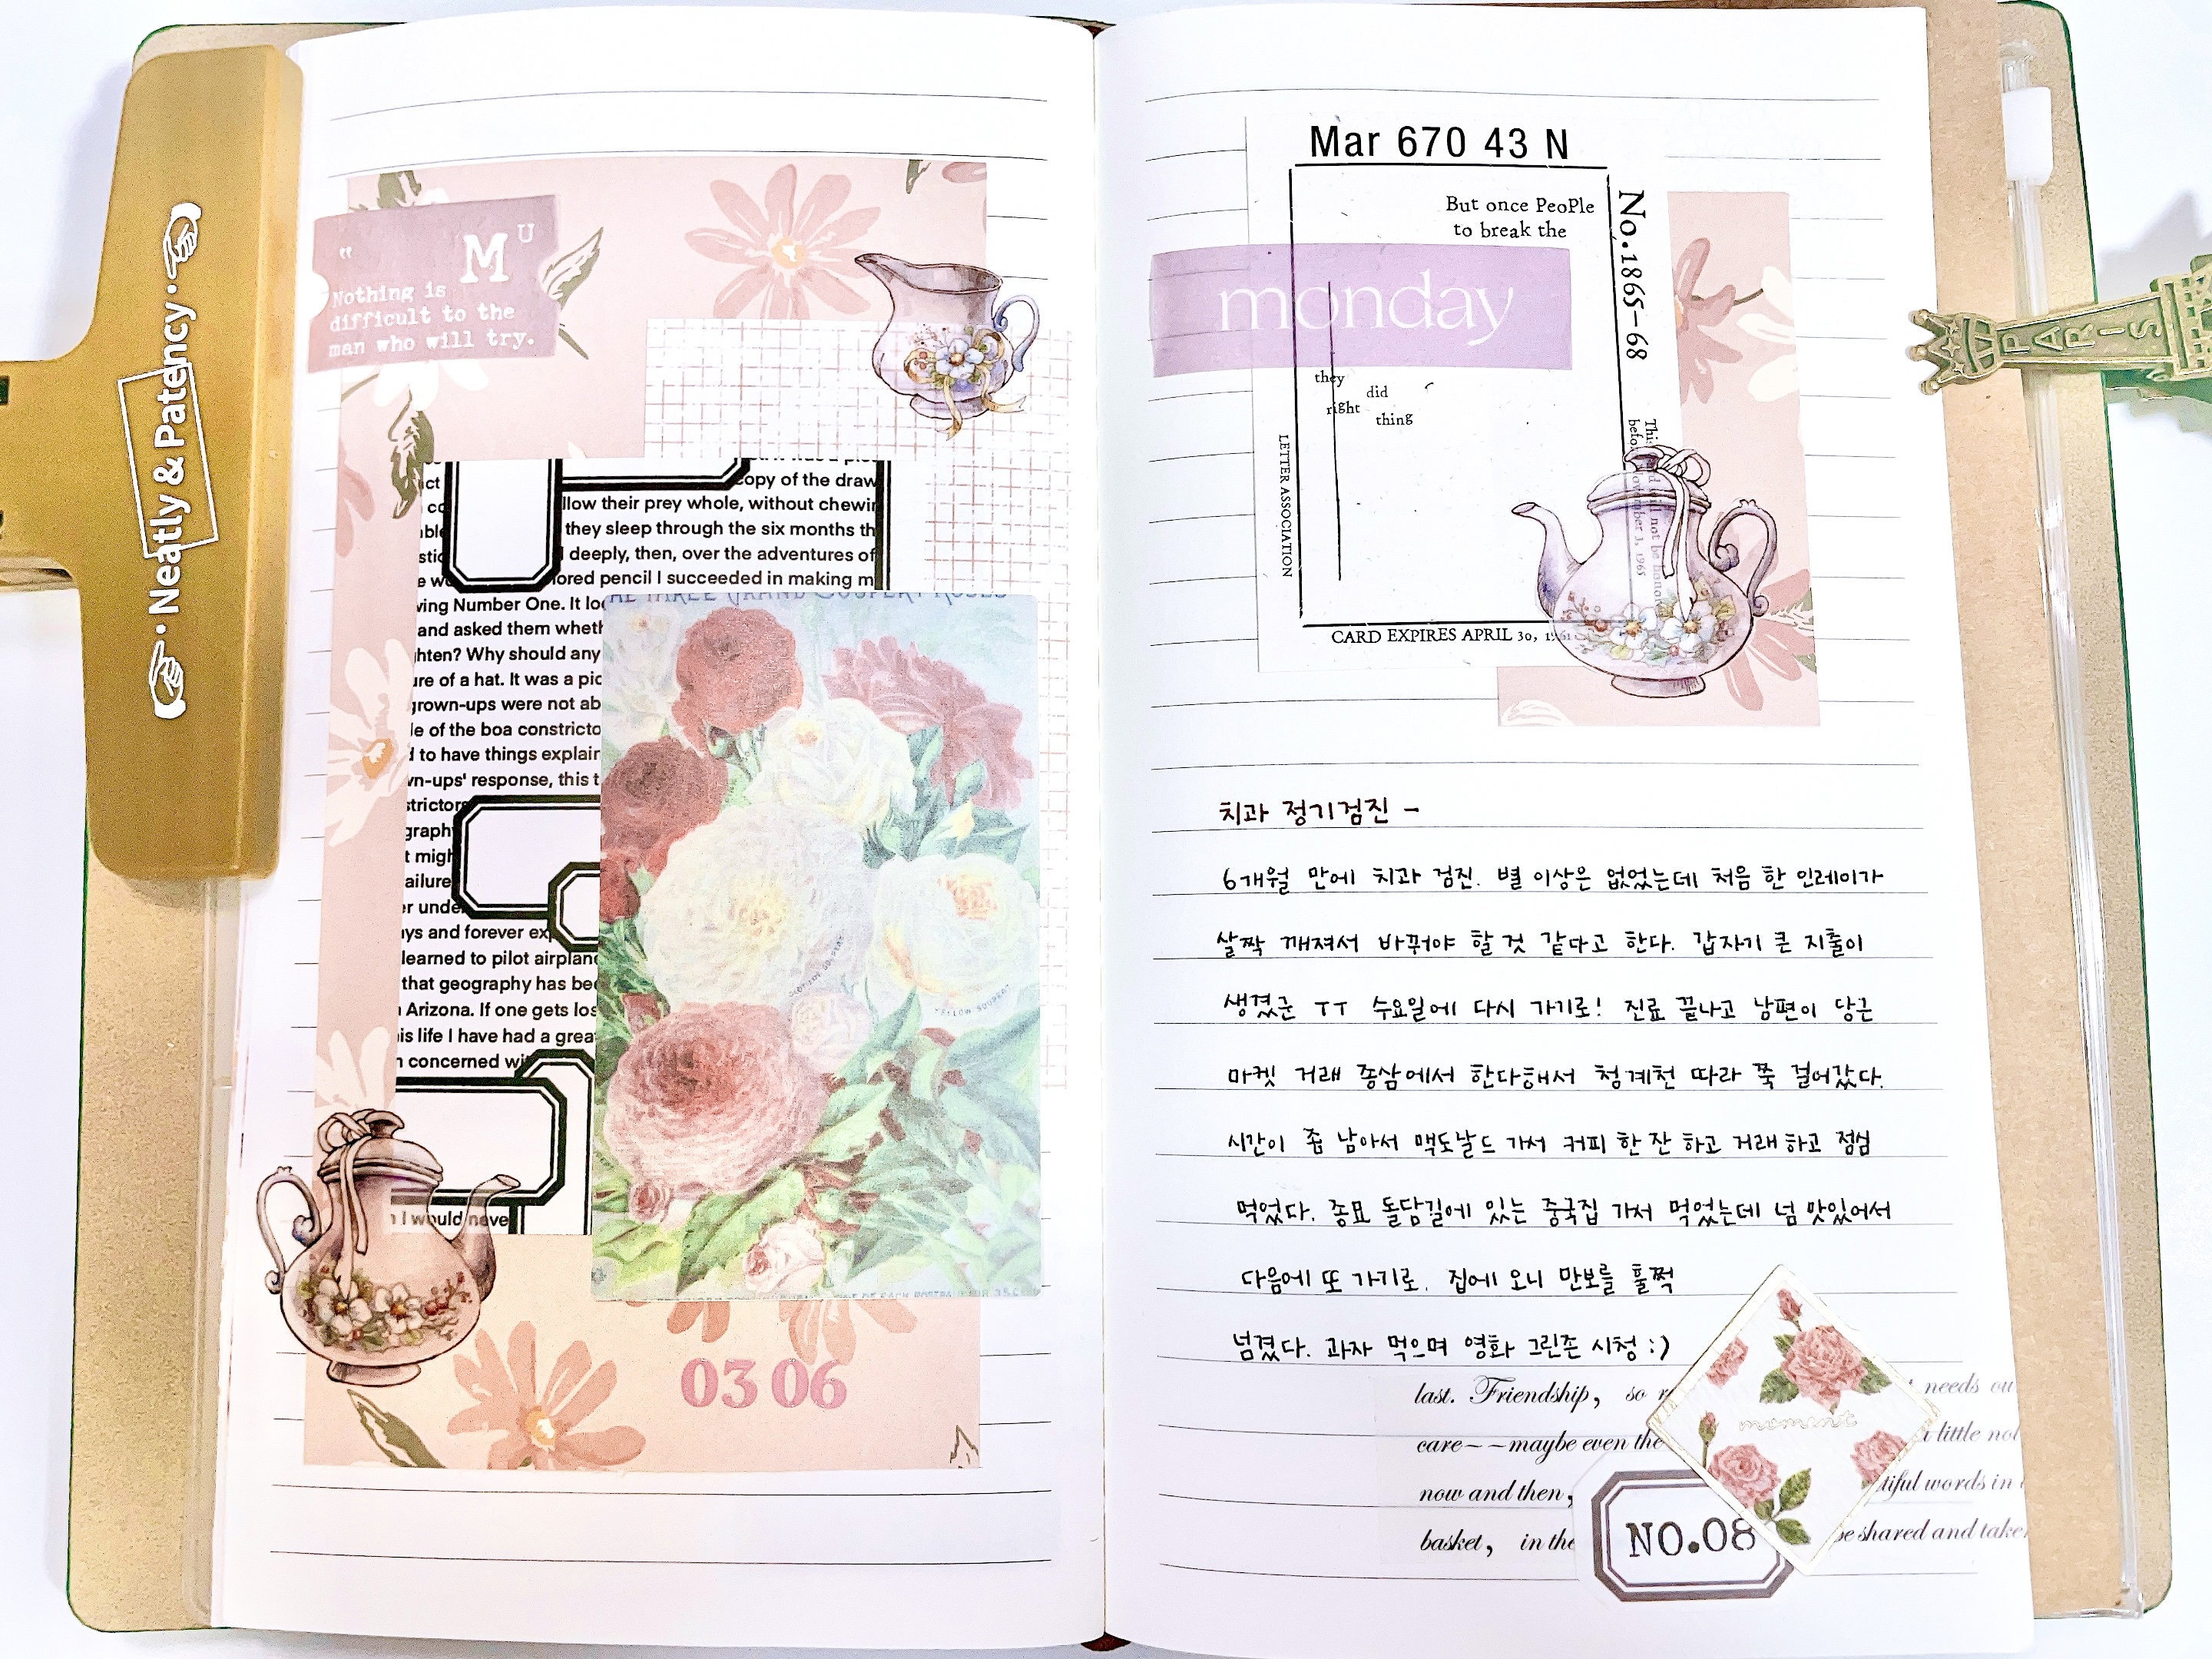 Neatly & Patency
“ M U
Nothing is
difficult to the
man who will try.
copy of the draw
llow their prey whole, without chewin
they sleep through the six months th
deeply, then, over the adventures of
ored pencil I succeeded in making m
ving Number One. It loo
and asked them wheth
hten? Why should any
ure of a hat. It was a pic
grown-ups were not ab
le of the boa constricto
d to have things explain
wn-ups' response, this t
strictors
graph
t migh
ailure
er unde
ays and forever exp
learned to pilot airplane
that geography has bee
Arizona. If one gets los
is life I have had a grea
n concerned wi
I would never
03 06
Mar 670 43 N
But once PeoPle
to break the
No.1865-68
monday
they
did
right
thing
LETTER ASSOCIATION
CARD EXPIRES APRIL 30, 1961
PARIS
치과 정기검진 -
6개월 만에 치과 검진. 별 이상은 없었는데 처음 한 인레이가
살짝 깨져서 바꿔야 할 것 같다고 한다. 갑자기 큰 지출이
생겼군 ㅜㅜ 수요일에 다시 가기로! 진료 끝나고 남편이 당근
마켓 거래 종삼에서 한다해서 청계천 따라 쭉 걸어갔다.
시간이 좀 남아서 맥도날드 가서 커피 한 잔 하고 거래 하고 점심
먹었다. 종묘 돌담길에 있는 중국집 가서 먹었는데 넘 맛있어서
다음에 또 가기로. 집에 오니 만보를 훌쩍
넘겼다. 과자 먹으며 영화 그린존 시청 :)
last. Friendship, so r
needs ou
care--maybe even the
a little not
now and then,
tiful words in
basket, in the
be shared and take
moment
NO.08